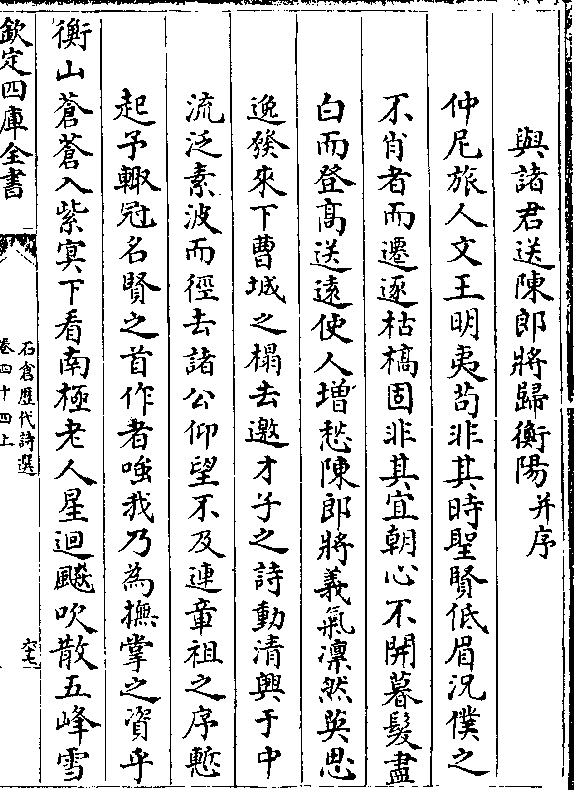 與諸君送陳郎將歸衡陽 并序
仲尼旅人文王明夷苟非其時聖賢低眉況僕之
不肖者而遷逐枯槁固非其宜朝心不開暮髮盡
白而登髙送遠使人增愁陳郎將義氣凛然英思
逸發來下曹城之榻去邀才子之詩動清興于中
流泛素波而徑去諸公仰望不及連章祖之序慙
起予輙冠名賢之首作者嗤我乃為撫掌之資乎
衡山蒼蒼入紫冥下看南極老人星迴飈吹散五峰雪
欽定四庫全書
石倉歷代詩選
卷四十四上